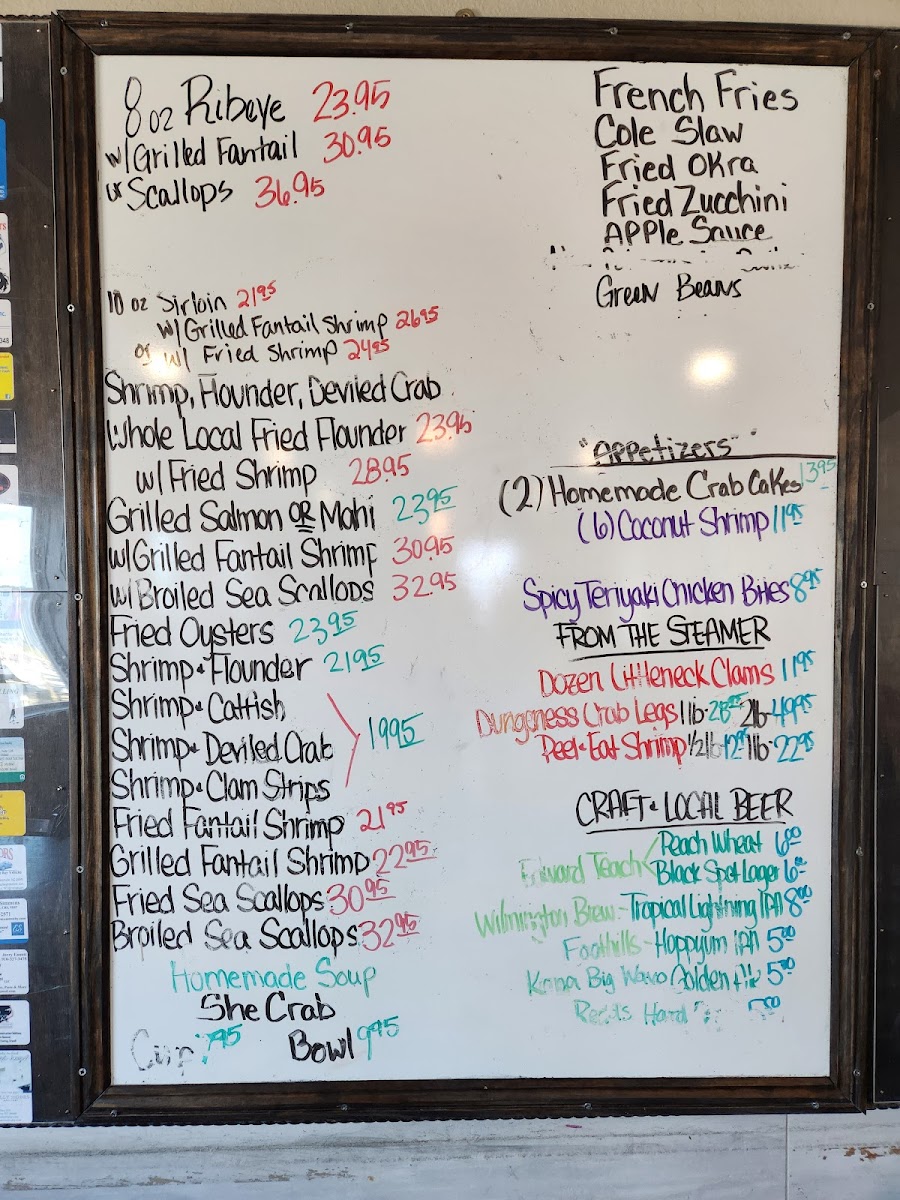 8 oz Ribeye 23.95
w/ Grilled Fantail 30.95
or Scallops 36.95
10 oz Sirloin 21.95
w/ Grilled Fantail Shrimp 26.95
or w/ Fried Shrimp 24.95
Shrimp, Flounder, Deviled Crab
Whole Local Fried Flounder 23.95
w/ Fried Shrimp 28.95
Grilled Salmon OR Mahi 23.95
w/ Grilled Fantail Shrimp 30.95
w/ Broiled Sea Scallops 32.95
Fried Oysters 23.95
Shrimp & Flounder 21.95
Shrimp & Catfish
Shrimp & Deviled Crab 19.95
Shrimp & Clam Strips
Fried Fantail Shrimp 21.95
Grilled Fantail Shrimp 22.95
Fried Sea Scallops 30.95
Broiled Sea Scallops 32.95
Homemade Soup
She Crab
Cup 7.95 Bowl 9.95
French Fries
Cole Slaw
Fried Okra
Fried Zucchini
Apple Sauce
Green Beans
"Appetizers"
(2) Homemade Crab Cakes 13.95
(6) Coconut Shrimp 11.95
Spicy Teriyaki Chicken Bites 8.95
FROM THE STEAMER
Dozen Littleneck Clams 11.95
Dungeness Crab Legs 1 lb - 28.95 2 lb - 49.95
Peel & Eat Shrimp 1/2 lb 12.95 1 lb - 22.95
CRAFT & LOCAL BEER
Edward Teach Peach Wheat 6.00
Black Spot Lager 6.-
Wilmington Brew - Tropical Lightning IPA 8.00
Foothills - Hoppyum IPA 5.00
Kona Big Wave Golden Ale 5.00
Redd's Hard 5.00